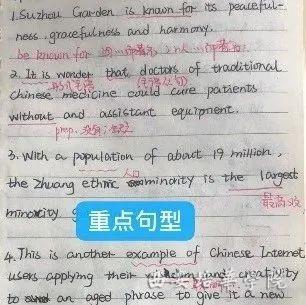 1. Suzhou Garden is known for its peaceful-
ness, gracefulness and harmony.
be known for
2. It is wonder that doctors of traditional
形式主语
Chinese medicine could cure patients
without and assistant equipment.
prep. 没有
3. With a population of about 19 million,
人口
the Zhuang ethnic minority is the largest
最高级
minority
重点句型
4. This is another example of Chinese Internet
users applying their and creativity
to an aged phrase to give it a new